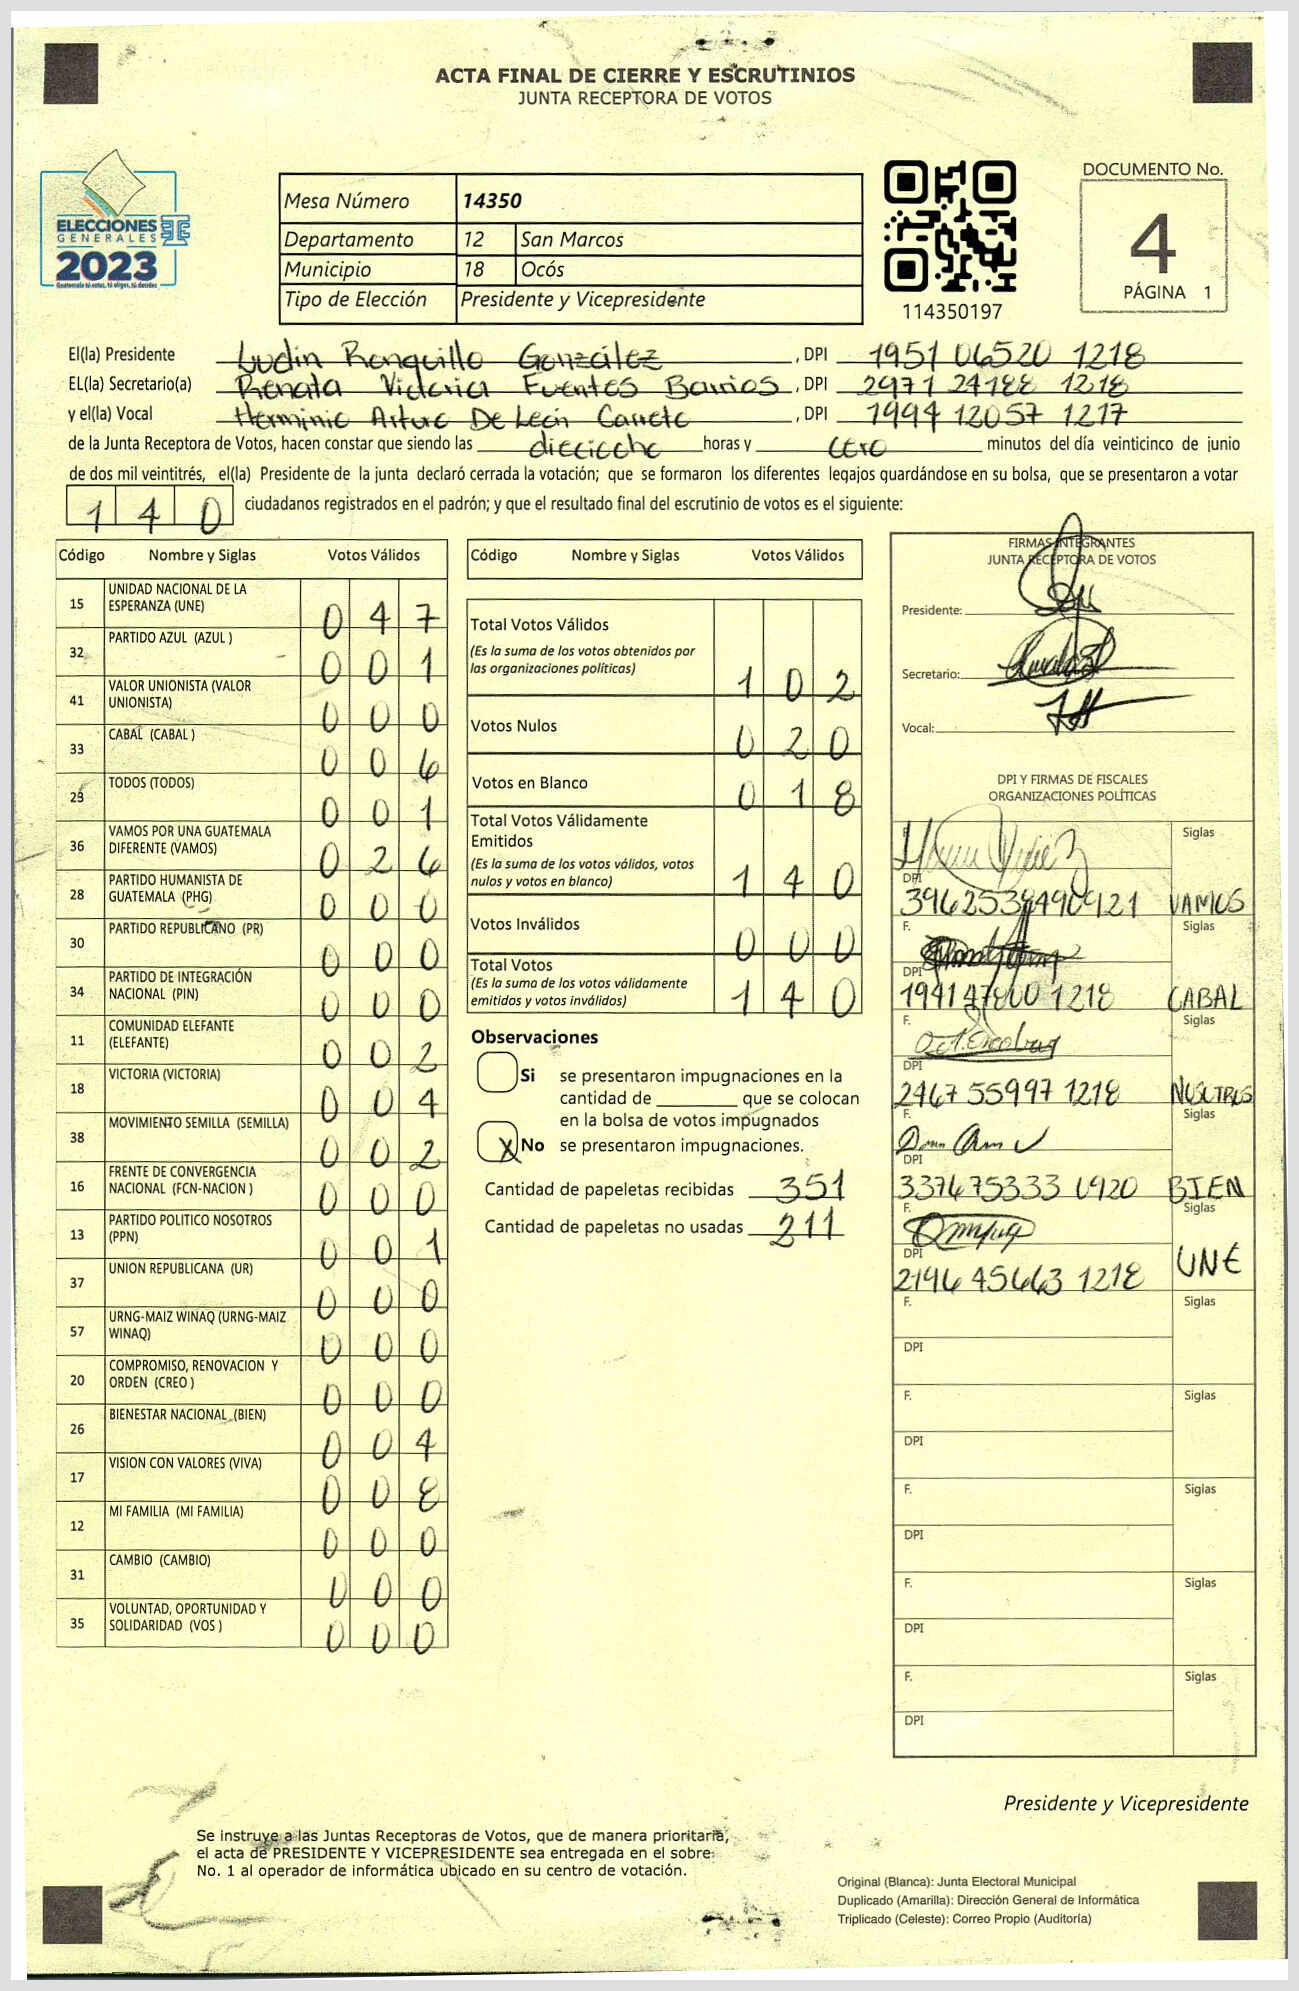 ACTA FINAL DE CIERRE Y ESCRUTINIOS
JUNTA RECEPTORA DE VOTOS
ELECCIONES
GENERALES
2023
Guatemala tú votas, tú eliges, tú decides
Mesa Número 14350
Departamento 12 San Marcos
Municipio 18 Ocós
Tipo de Elección Presidente y Vicepresidente
114350197
DOCUMENTO No.
4
PÁGINA 1
El(la) Presidente Ludin Ronquillo González, DPI 1951 06520 1218
EL(la) Secretario(a) Renata Victoria Fuentes Barrios, DPI 2971 24188 1218
y el(la) Vocal Herminio Arturo De León Carreto, DPI 1994 12057 1217
de la Junta Receptora de Votos, hacen constar que siendo las dieciocho horas y cero minutos del día veinticinco de junio
de dos mil veintitrés, el(la) Presidente de la junta declaró cerrada la votación; que se formaron los diferentes legajos guardándose en su bolsa, que se presentaron a votar
140 ciudadanos registrados en el padrón; y que el resultado final del escrutinio de votos es el siguiente:
Código Nombre y Siglas Votos Válidos
15 UNIDAD NACIONAL DE LA ESPERANZA (UNE) 047
32 PARTIDO AZUL (AZUL ) 001
41 VALOR UNIONISTA (VALOR UNIONISTA) 000
33 CABAL (CABAL ) 006
23 TODOS (TODOS) 001
36 VAMOS POR UNA GUATEMALA DIFERENTE (VAMOS) 026
28 PARTIDO HUMANISTA DE GUATEMALA (PHG) 000
30 PARTIDO REPUBLICANO (PR) 000
34 PARTIDO DE INTEGRACIÓN NACIONAL (PIN) 000
11 COMUNIDAD ELEFANTE (ELEFANTE) 002
18 VICTORIA (VICTORIA) 004
38 MOVIMIENTO SEMILLA (SEMILLA) 002
16 FRENTE DE CONVERGENCIA NACIONAL (FCN-NACION ) 000
13 PARTIDO POLITICO NOSOTROS (PPN) 001
37 UNION REPUBLICANA (UR) 000
57 URNG-MAIZ WINAQ (URNG-MAIZ WINAQ) 000
20 COMPROMISO, RENOVACION Y ORDEN (CREO ) 000
26 BIENESTAR NACIONAL (BIEN) 004
17 VISION CON VALORES (VIVA) 008
12 MI FAMILIA (MI FAMILIA) 000
31 CAMBIO (CAMBIO) 000
35 VOLUNTAD, OPORTUNIDAD Y SOLIDARIDAD (VOS ) 000
Código Nombre y Siglas Votos Válidos
Total Votos Válidos
(Es la suma de los votos obtenidos por
las organizaciones políticas) 102
Votos Nulos 020
Votos en Blanco 018
Total Votos Válidamente
Emitidos
(Es la suma de los votos válidos, votos
nulos y votos en blanco) 140
Votos Inválidos 000
Total Votos
(Es la suma de los votos válidamente
emitidos y votos inválidos) 140
Observaciones
Si se presentaron impugnaciones en la
cantidad de ________ que se colocan
en la bolsa de votos impugnados
X No se presentaron impugnaciones.
Cantidad de papeletas recibidas 351
Cantidad de papeletas no usadas 211
FIRMAS INTEGRANTES
JUNTA RECEPTORA DE VOTOS
Presidente:
Secretario:
Vocal:
DPI Y FIRMAS DE FISCALES
ORGANIZACIONES POLÍTICAS
F. Siglas
DPI 3962538490921 VAMOS
F. Siglas
DPI 1941 47800 1218 CABAL
F. Siglas
DPI 2467 55997 1218 NOSOTROS
F. Siglas
DPI 3376 75333 0920 BIEN
F. Siglas
DPI 2196 45663 1218 UNE
F. Siglas
DPI
F. Siglas
DPI
F. Siglas
DPI
F. Siglas
DPI
F. Siglas
DPI
Presidente y Vicepresidente
Se instruye a las Juntas Receptoras de Votos, que de manera prioritaria,
el acta de PRESIDENTE Y VICEPRESIDENTE sea entregada en el sobre
No. 1 al operador de informática ubicado en su centro de votación.
Original (Blanca): Junta Electoral Municipal
Duplicado (Amarilla): Dirección General de Informática
Triplicado (Celeste): Correo Propio (Auditoría)